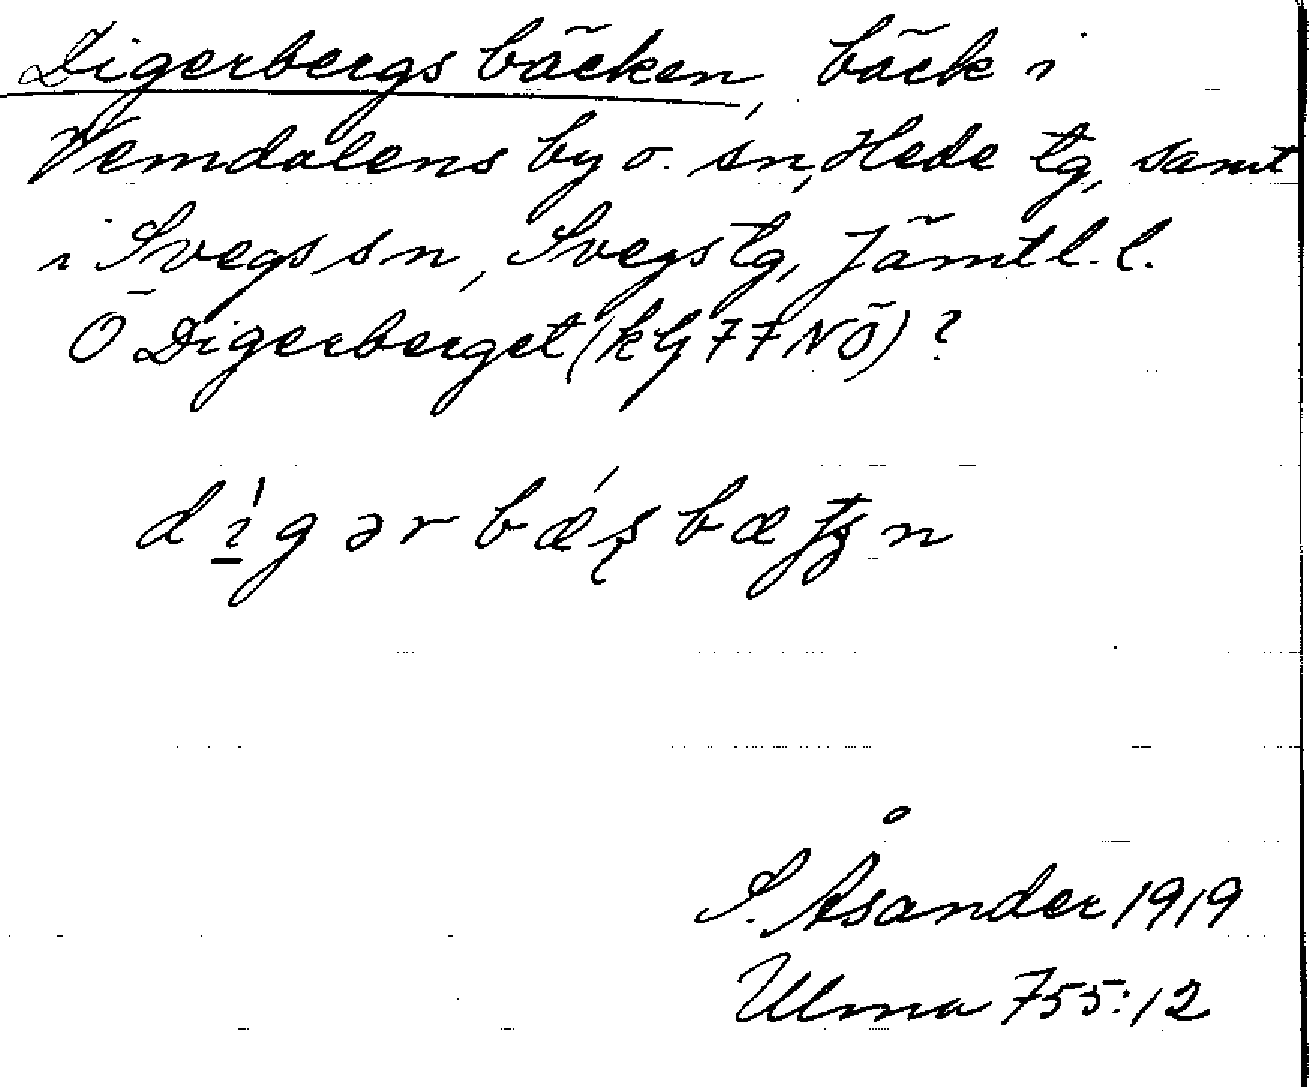 Digerbergsbäcken, bäck i
Vemdalens by o. sn, Hede tg, samt
i Svegs sn, Svegs tg, Jämtl. l.
Ö Digerberget (kbl 77 NÖ)?
dìgər bǽʂbæ n
S. Åsander 1919
Ulma 755:12